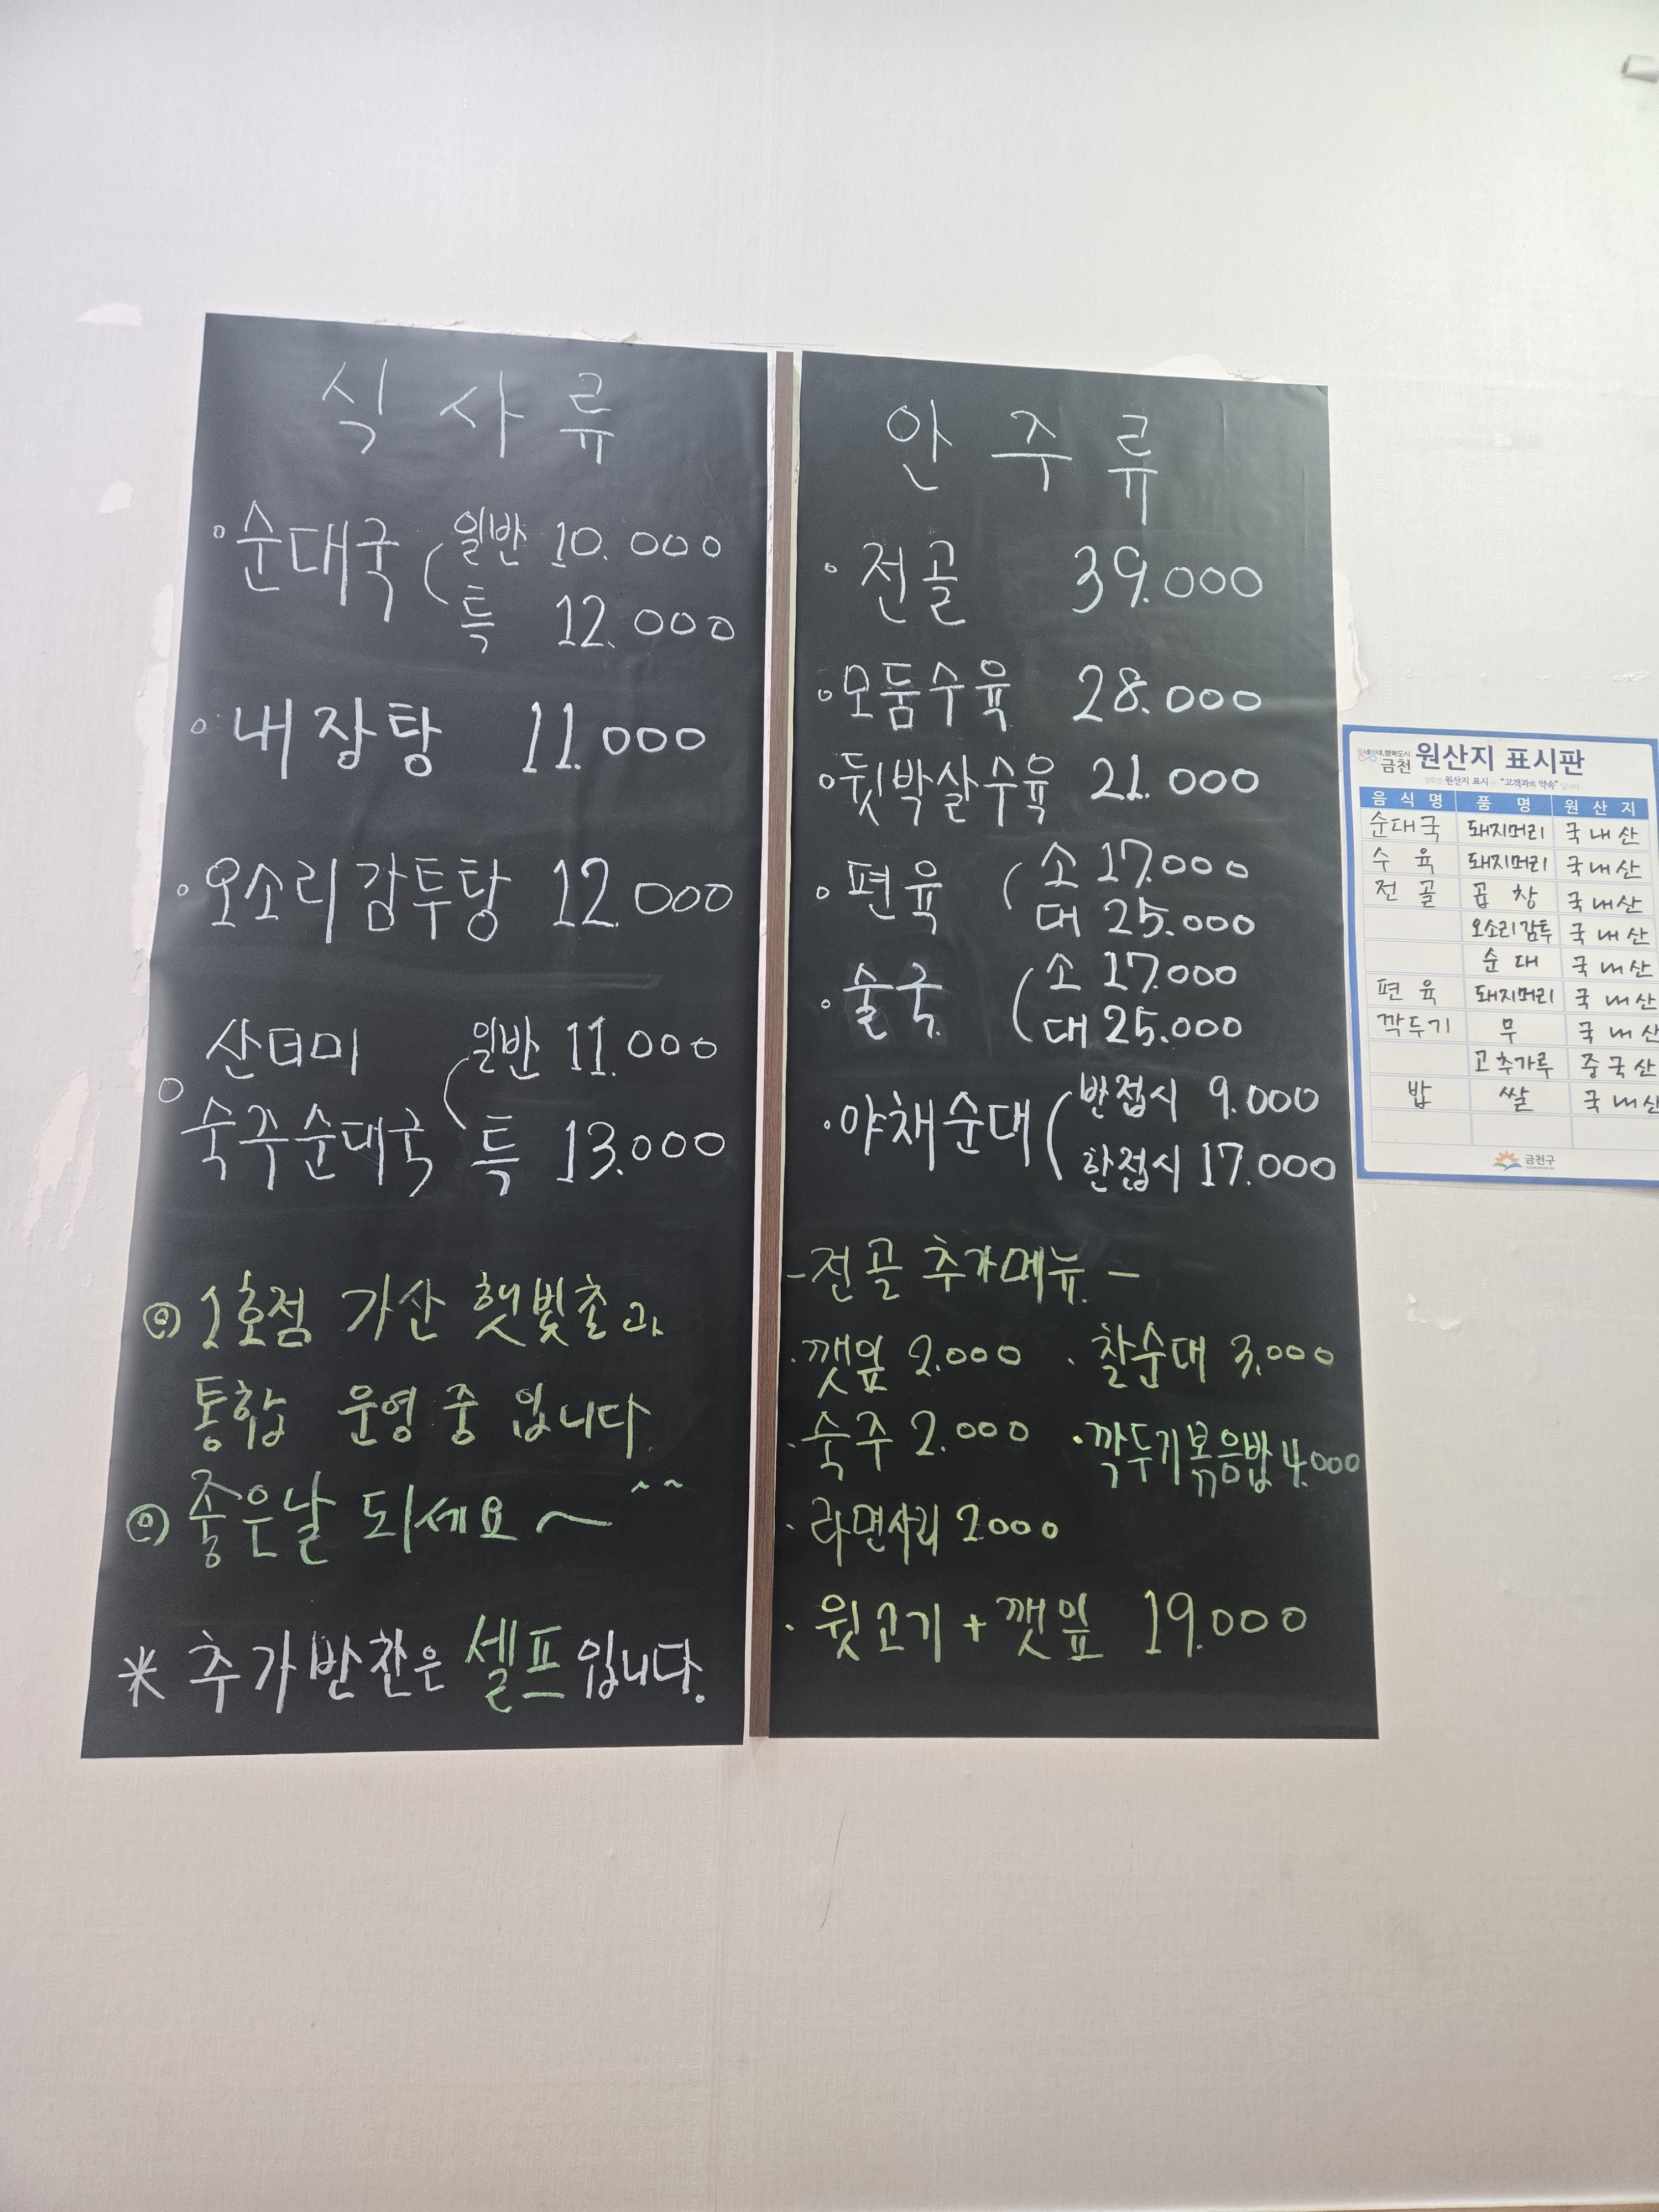 식사류
◦순대국 ( 일반 10.000
특 12.000
◦내장탕 11.000
◦오소리감투탕 12.000
산더미
◦숙주순대국 ( 일반 11.000
특 13.000
◎ 1호점 가산 햇빛촌과
통합 운영중 입니다.
◎ 좋은날 되세요~ ^^
* 추가반찬은 셀프입니다.
안주류
◦전골 39.000
◦모둠수육 28.000
◦뒷박살수육 21.000
◦편육 ( 소 17.000
대 25.000
◦술국 ( 소 17.000
대 25.000
·야채순대 ( 반접시 9.000
한접시 17.000
-전골 추가메뉴-
·깻잎 2.000 ·찰순대 3.000
·숙주 2.000 ·깍두기볶음밥 4.000
·라면사리 2000
·윗고기+깻잎 19.000
금천 원산지 표시판
원산지 표시는 "고객과의 약속"입니다.
음식명 품명 원산지
순대국 돼지머리 국내산
수육 돼지머리 국내산
전골 곱창 국내산
오소리감투 국내산
순대 국내산
편육 돼지머리 국내산
깍두기 무 국내산
고추가루 중국산
밥 쌀 국내산
금천구